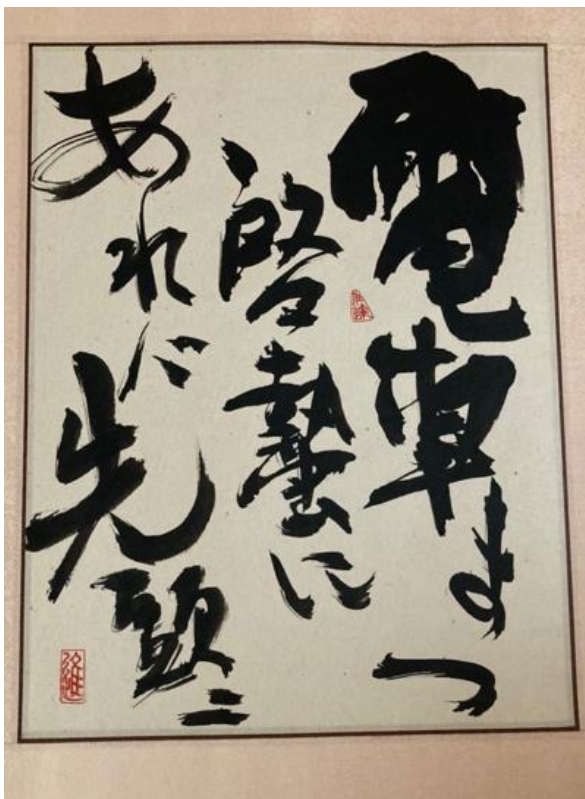 電車まつ
啓蟄に
あれバ先頭ニ